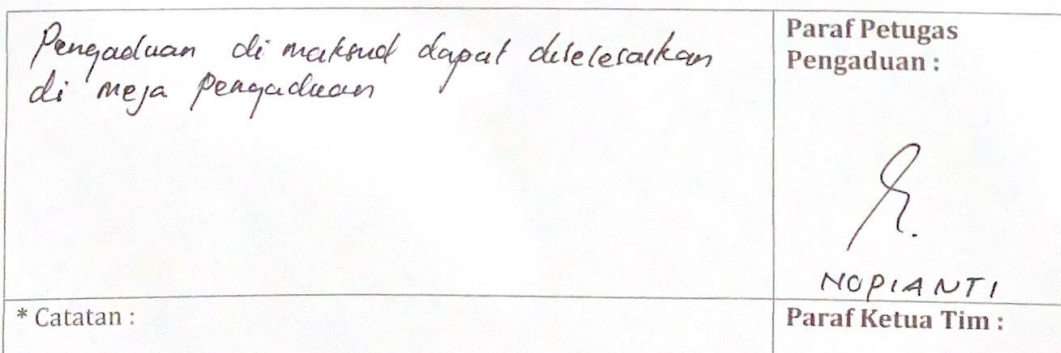 Pengaduan di maksud dapat diselesaikan
di meja pengaduan
Paraf Petugas
Pengaduan :
NOPIANTI
* Catatan :
Paraf Ketua Tim :